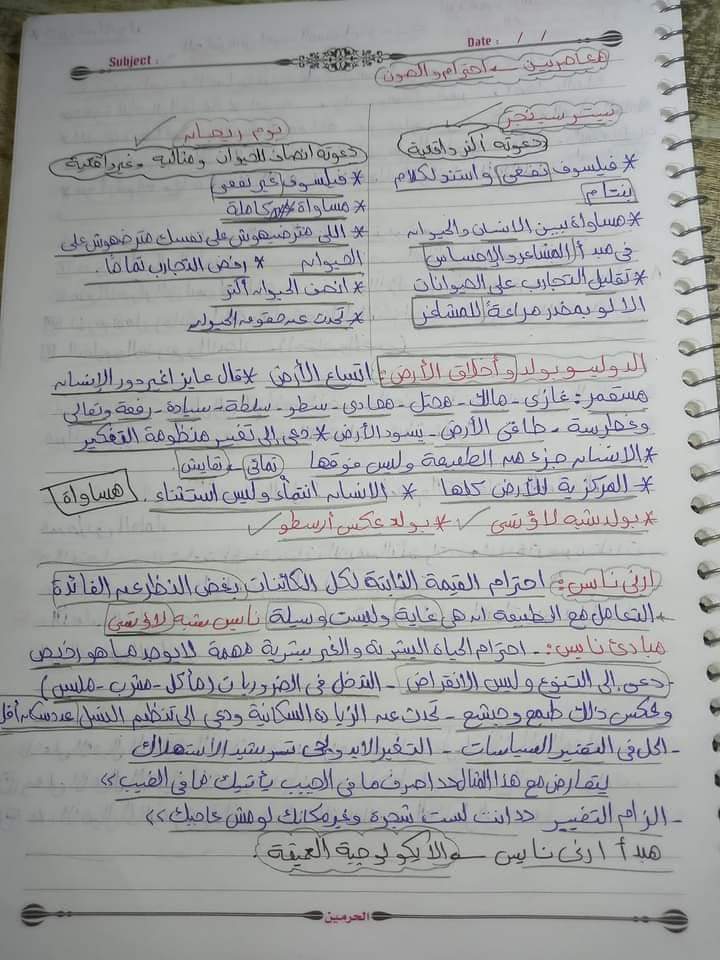 Subject :
Date : / /
معاصرين ← احترام والصون
بيتر سينجر
دعوته أكثر واقعية
* فيلسوف نفعى أو استند لكلام
بنتام
* مساواة بين الانسان والحيوان
فى مبدأ (المشاعر والإحساس
* تقليل التجارب على الحيوانات
الا لو بمخدر مراعاة للمشاعر
توم ريجان
دعوته انصاف للحيوان ومثالية وغير واقعية
* فيلسوف غير نفعى
* مساواة كاملة
* اللى مترضيهوش على نفسك مترضهوش على
الحيوان * رفض التجارب تمامًا.
* انصف الحيوان أكثر
* يتحدث عن حقوق الحيوان
الدوليو بولد وأخلاق الأرض: اتساع الأرض * قال عايز اغير دور الإنسان
من مستعمر: غازى - مالك - محتل - معادى - سطو - سلطة - سيادة - رفعة وتعالى
وغطرسة - طاقى الأرض - يسود الأرض * دعى إلى تغير منظومة التفكير
* الانسان جزء من الطبيعة وليس فوقها تماثى - تعايش
* - المركزية للأرض كلها * الانسان انتماء وليس استثناء . مساواة
* بولد شبه لاؤتسى ✓ * بولد عكس أرسطو ✓
ارنى نايس: احترام القيمة الثابتة لكل الكائنات بغض النظر عن الفائدة
* التعامل مع الطبيعة انه هى غاية وليست وسيلة نايس يشبه لاؤتسى.
مبادئ نايس: - احترام الحياة البشرية والغير بشرية مهمة لا يوجد ما هو رخيص
- دعى إلى التنوع وليس الانقراض - التدخل فى الضروريات (مأكل - مشرب - ملبس)
وعكس ذلك طمع وجشع - تحدث عن الزيادة السكانية ودعى إلى تنظيم النسل عدد سكان أقل
- الحل فى التغير السياسات - التغير الايدولوجى ترشيد الأستهلاك
يتعارض مع هذا المثال احد اصرف ما فى الجيب يأتيك ما فى الغيب >>
- الزام التغيير << انت لست شجرة وغير مكانك لو مش عاجبك >>
مبدأ ارنى نايس ← الايكولوجية العميقة .
الحرمين